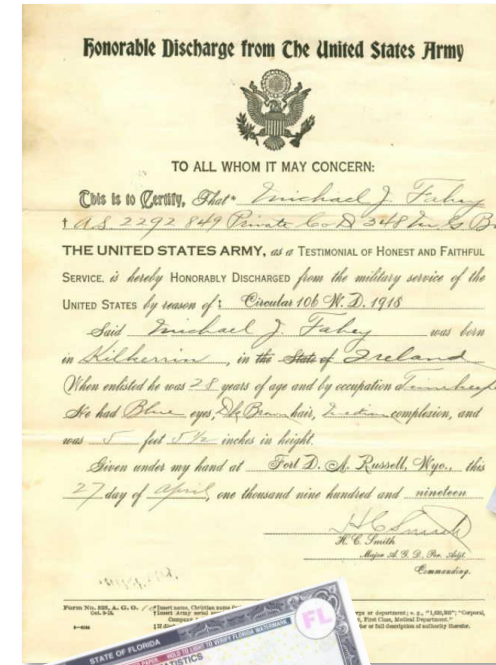 Honorable Discharge from The United States Army
TO ALL WHOM IT MAY CONCERN:
This is to Certify, That* Michael J. Fahey
† A.S. 2292849 Private Co D 348 M G B
THE UNITED STATES ARMY, as a TESTIMONIAL OF HONEST AND FAITHFUL
SERVICE, is hereby HONORABLY DISCHARGED from the military service of the
UNITED STATES by reason of ‡ Circular 106 W. D. 1918
Said Michael J. Fahey was born
in Kilkerrin, in the State of Ireland
When enlisted he was 28 years of age and by occupation a Timekeep
He had Blue eyes, Dk Brown hair, complexion, and
was 5 feet 5 1/2 inches in height.
Given under my hand at Fort D. A. Russell, Wyo., this
27 day of April, one thousand nine hundred and nineteen
H C Smith
H. C. Smith
Major A. G. D. Adjt.
Commanding.
Form No. 525, A. G. O.
Oct. 9-18.
*Insert name, Christian name
†Insert Army serial
Company
‡If dis
or department; e. g., "1,620,302"; "Corporal,
First Class, Medical Department."
or full description of authority therefor.
STATE OF FLORIDA
HOLD TO LIGHT TO VERIFY FLORIDA WATERMARK
TISTICS
FL